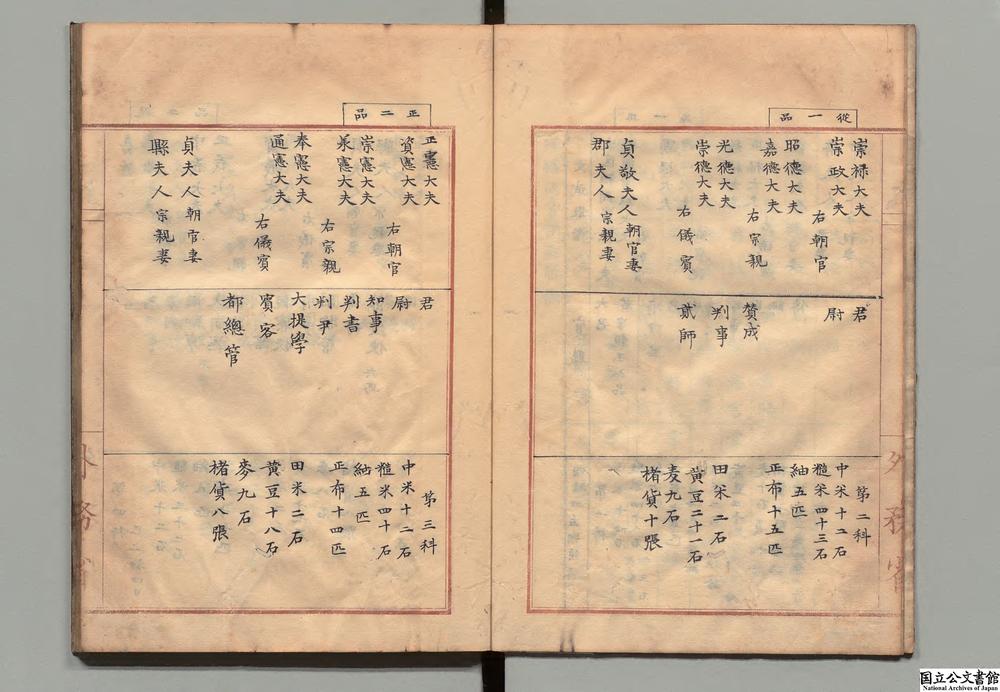 從一品
崇祿大夫
崇政大夫
右朝官
昭德大夫
嘉德大夫
右宗親
光德大夫
崇德大夫
右儀賓
貞敬夫人朝官妻
郡夫人宗親妻
君
尉
贊成
判事
貳師
第二科
中米十二石
糙米四十三石
紬五匹
正布十五匹
田米二石
黃豆二十一石
麦九石
楮貨十張
正二品
正憲大夫
資憲大夫
右朝官
崇憲大夫
承憲大夫
右宗親
奉憲大夫
通憲大夫
右儀賓
貞夫人朝官妻
縣夫人宗親妻
君
尉
知事
判書
判尹
大提學
賓客
都總管
第三科
中米十二石
糙米四十石
紬五匹
正布十四匹
田米二石
黃豆十八石
麥九石
楮貨八張
外務省
国立公文書館
National Archives of Japan